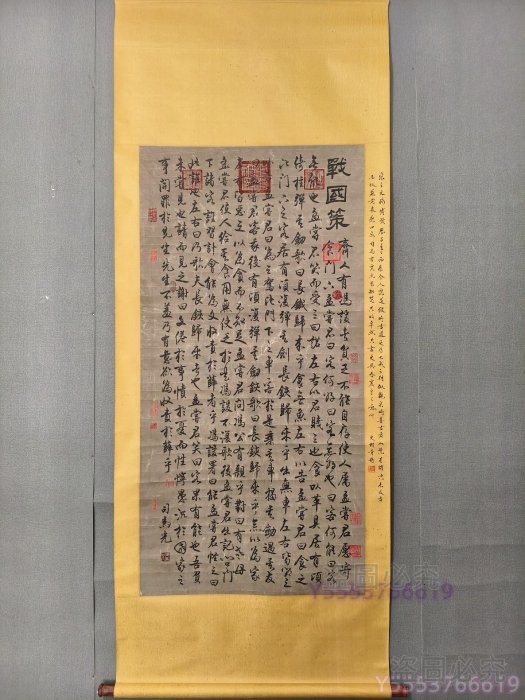 戰國策
齊人有馮諼者貧乏不能自存使人屬孟嘗君願寄
食門下孟嘗君曰客何好曰客無好也曰客何能曰客
無能也孟嘗君笑而受之曰諾左右以君賤之也食以草具居有頃
倚柱彈其劍歌曰長鋏歸來乎食無魚左右以告孟嘗君曰食之
比門下之客居有頃復彈其劍長鋏歸來乎出無車左右皆笑之
以告孟嘗君曰為之駕比門下之車客於是乘其車揭其劍過其友
曰孟嘗君客我後有頃復彈其劍鋏歌曰長鋏歸來乎無以為家
左右皆惡之以為貪而不知足孟嘗君問馮公有親乎對曰有老母
孟嘗君使人給其食用無使乏於是馮諼不復歌後孟嘗君出記問門
下諸客誰習計會能為文收責於薛者乎馮諼署曰能孟嘗君怪之曰
此誰也左右曰乃歌夫長鋏歸來乎者也孟嘗君笑曰客果有能也吾負
未嘗見也請而見之謝曰文倦於事憒於憂而性懧愚沉於國家之
事開罪於先生先生不羞乃有意欲為收責於薛乎
司馬光
盜圖必究
Y5553766619
盜圖必究
Y5553766619